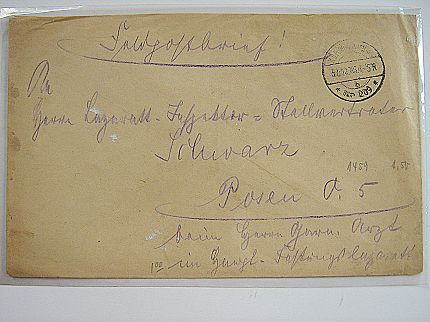 Feldpostbrief!
An
Herrn Lazarett-Inspektor-Stellvertreter
Schwarz
1459 1,50
Posen O. 5
beim Herrn Garn. Arzt
100 im Haupt-Festungslazarett